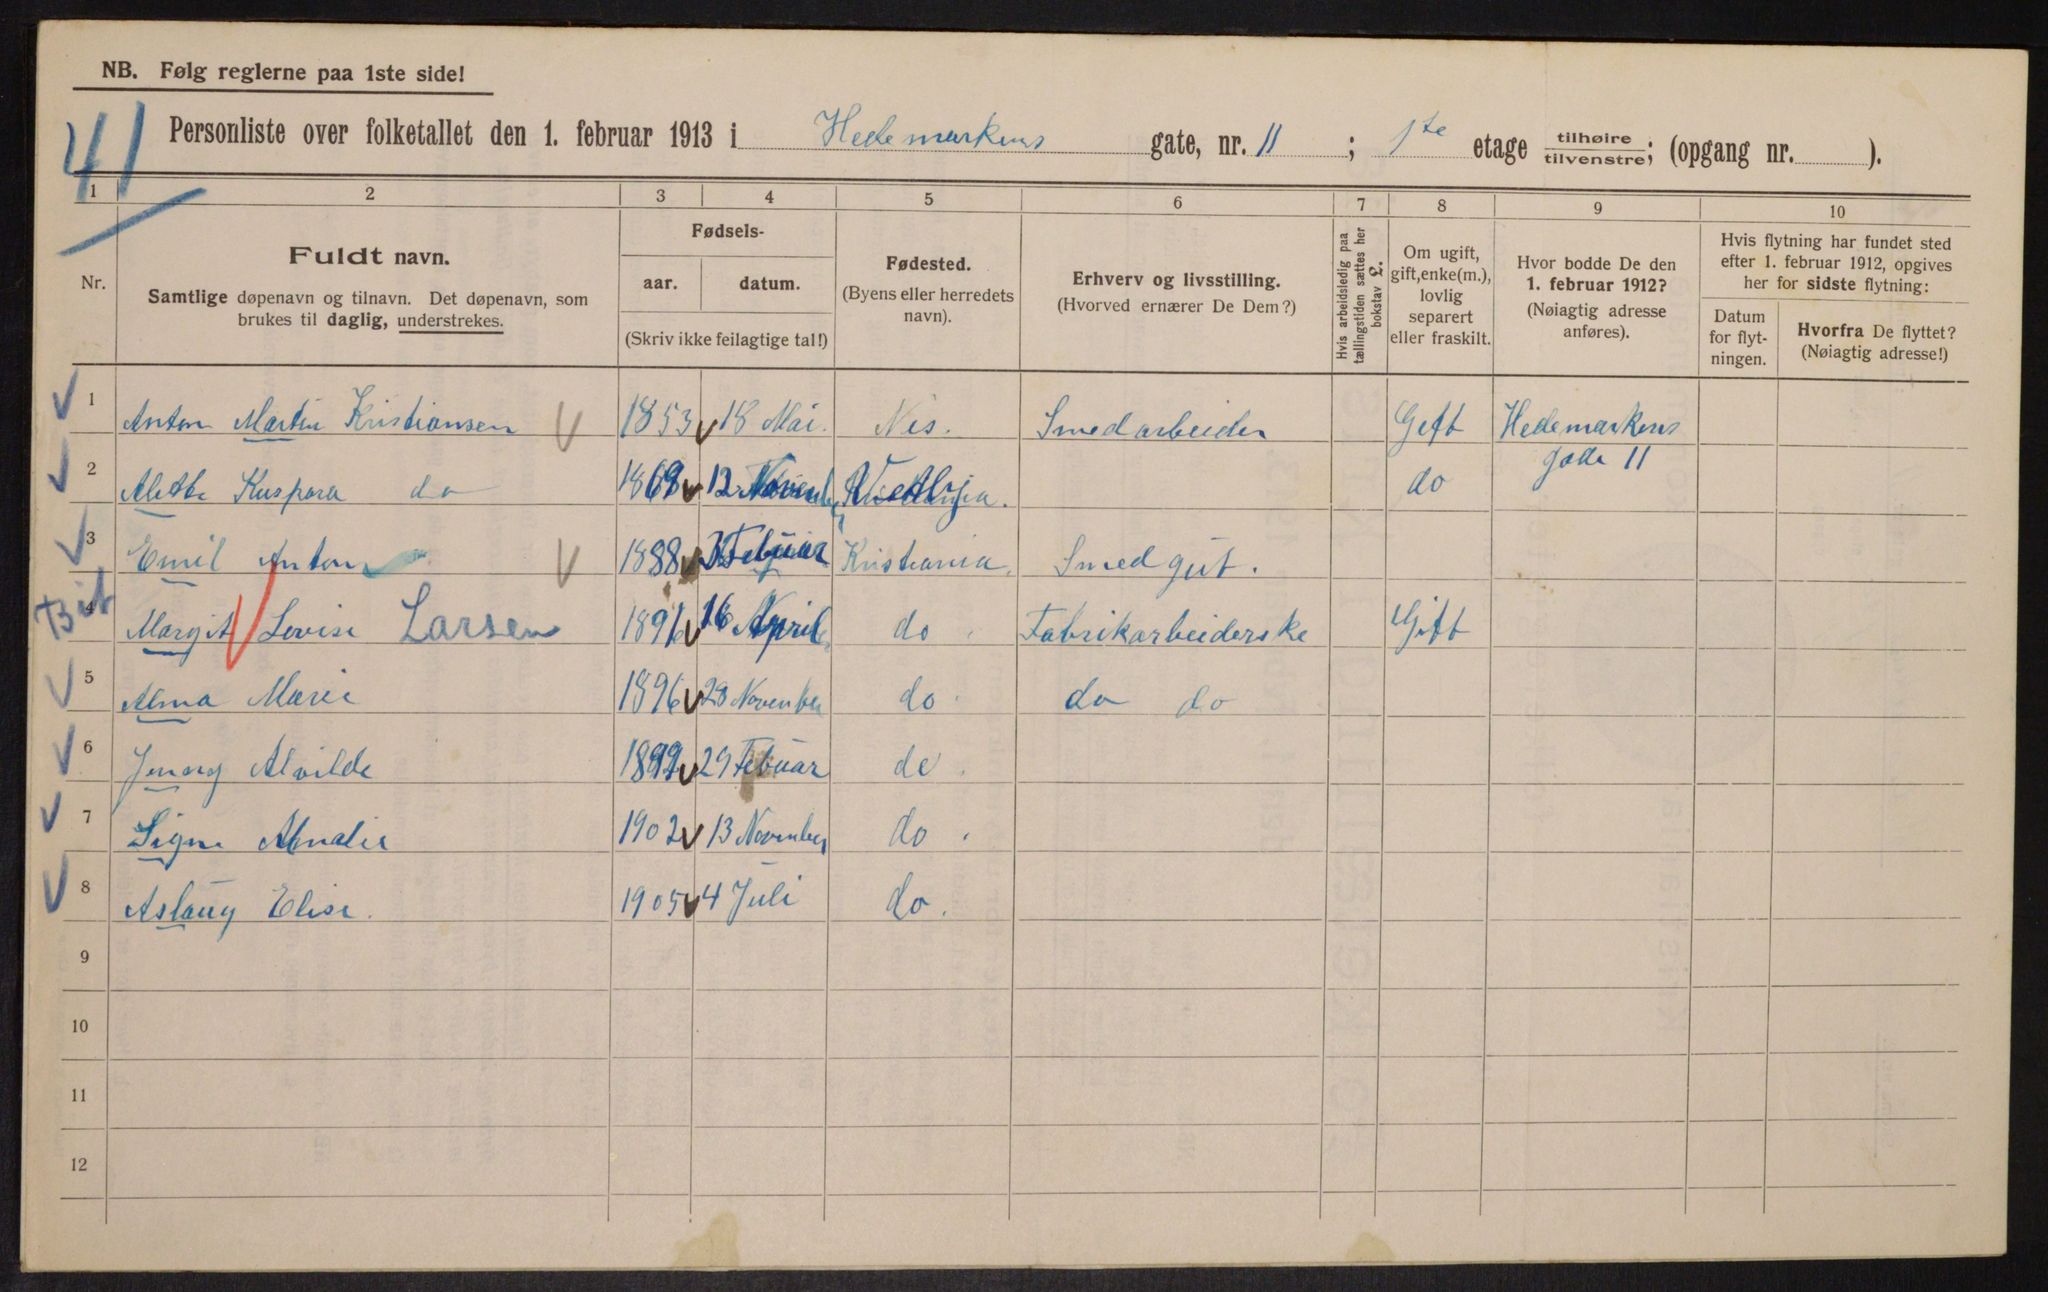 NB. Følg reglerne paa 1ste side!
41
Personliste over folketallet den 1. februar 1913 i Hedemarkens gate, nr. 11 ; 1ste etage tilhøire tilvenstre; (opgang nr. ).
1 2 3 4 5 6 7 8 9 10
Nr.
Fuldt navn.
Samtlige døpenavn og tilnavn. Det døpenavn, som
brukes til daglig, understrekes.
Fødsels-
aar. datum.
(Skriv ikke feilagtige tal!)
Fødested.
(Byens eller herredets
navn).
Erhverv og livsstilling.
(Hvorved ernærer De Dem?)
Hvis arbeidsledig paa
tællingstiden sættes her
bokstav L.
Om ugift,
gift, enke(m.),
lovlig
separert
eller fraskilt.
Hvor bodde De den
1. februar 1912?
(Nøiagtig adresse
anføres).
Hvis flytning har fundet sted
efter 1. februar 1912, opgives
her for sidste flytning:
Datum
for flyt-
ningen.
Hvorfra De flyttet?
(Nøiagtig adresse!)
1 Anton Martin Kristiansen 1853 18 Mai. Nes. Smedarbeider Gift Hedemarkens
gade 11
2 Kaspara do 12 do
3 Emil Anton 1888 Februar Kristiania. Smedgut.
4 Margit Lovise Larsen 1891 16 April do. Fabrikarbeiderske Gift
5 Alma Marie 1896 November do. do do
6 Alvilde 29 Febuar do.
7 Signe Amalie 1902 13 November do.
8 Aslaug Elise. 1905 4 Juli do.
9
10
11
12